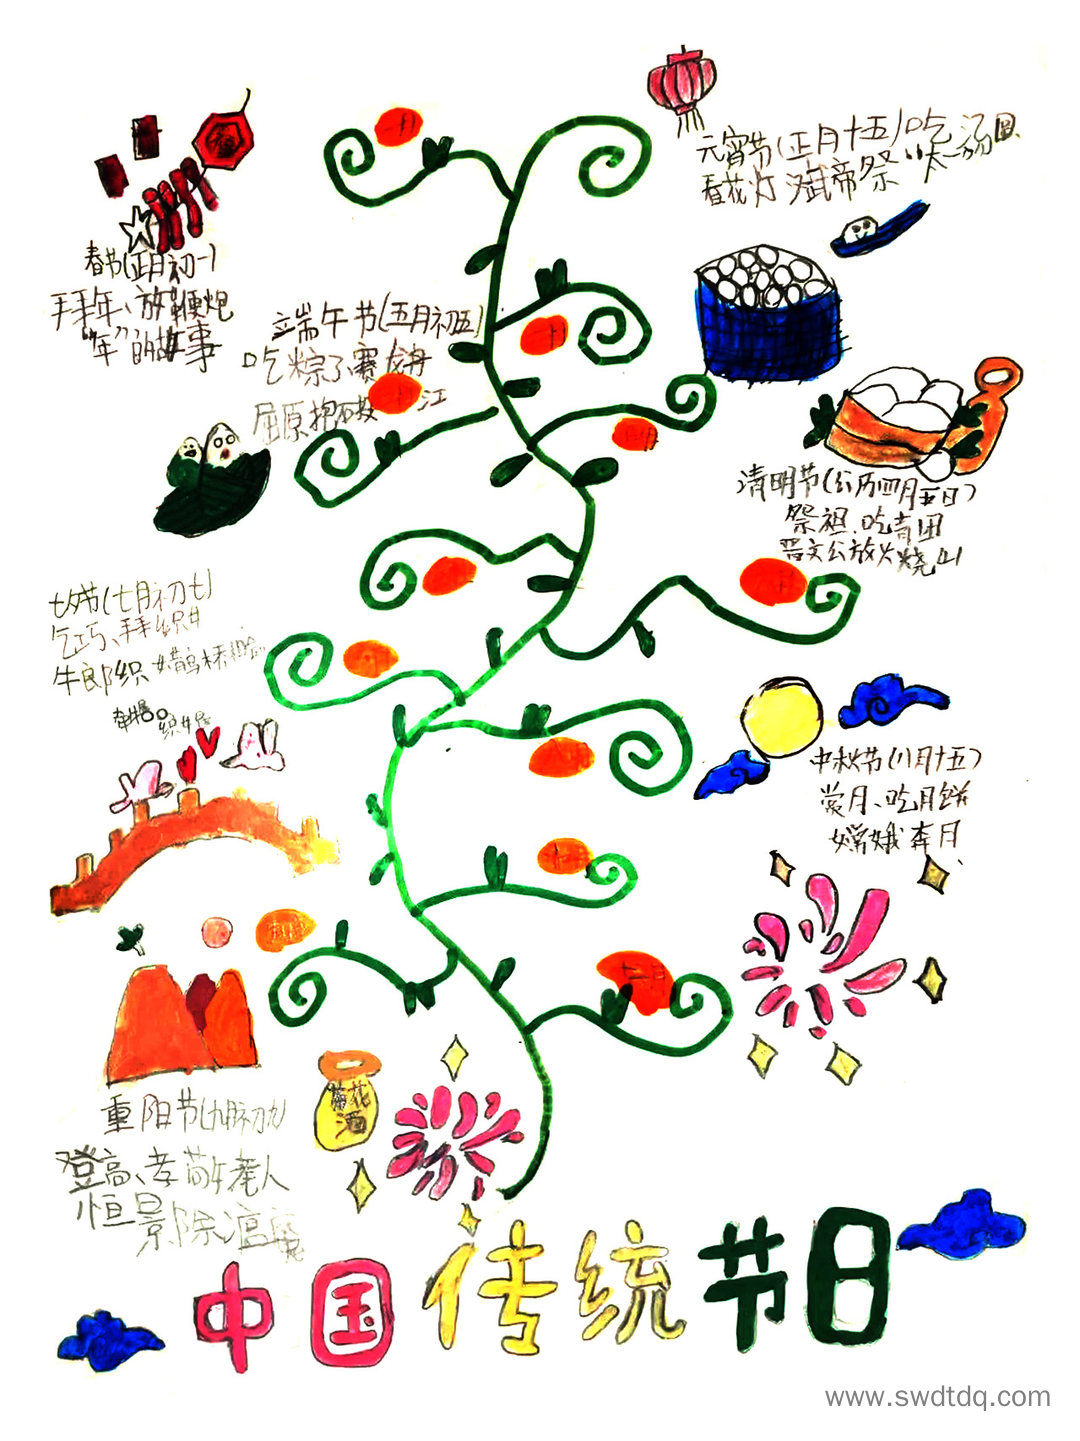 福
春节(正月初一)
拜年、放鞭炮
"年"的故事
一月
元宵节(正月十五)吃汤圆
看花灯 汉武帝祭"太一"
端午节(五月初五)
吃粽子、赛龙舟
屈原抱石投 江
二月
三月
清明节(公历四月五日)
祭祖、吃青团
晋文公放火烧山
七夕节(七月初七)
乞巧、拜织女
牛郎织女鹊桥相会
牵牛星
织女星
中秋节(八月十五)
赏月、吃月饼
嫦娥奔月
十二月
菊花
酒
重阳节(九月初九)
登高、孝敬老人
恒景除瘟魔
中国传统节日
www.swdtdq.com